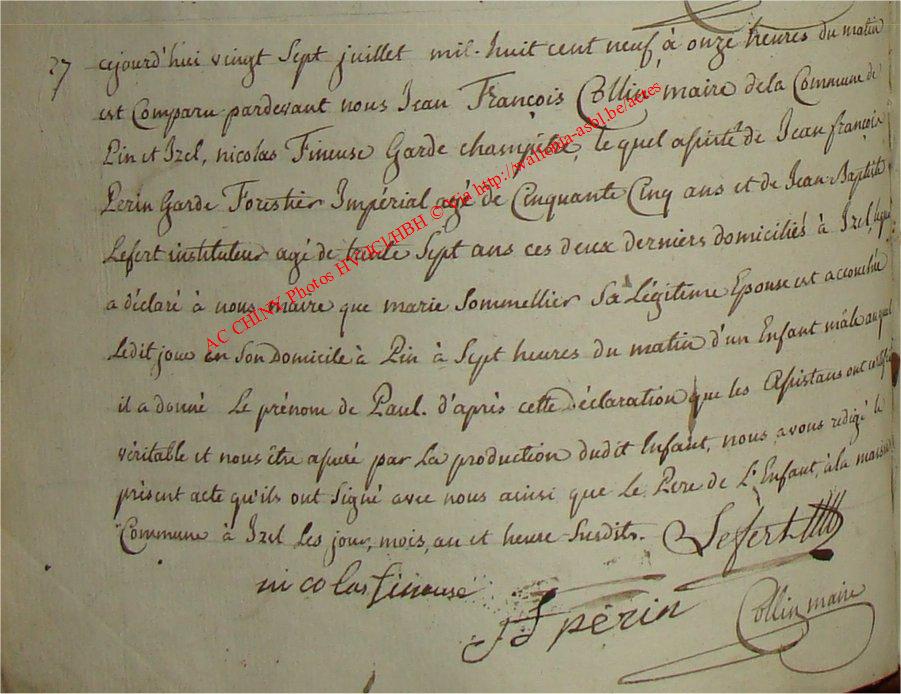 27
cejourd'hui vingt Sept juillet mil-huit cent neuf à onze heures du matin
est Comparu pardevant nous Jean François Collin maire dela Commune de
Pin et Izel, nicolas Fineuse Garde champêtre, lequel assisté de Jean françois
Perin Garde Forestier Impérial agé de Cinquante Cinq ans et de Jean-Baptiste
Lefert instituteur agé de trente Sept ans ces deux derniers domiciliés à Izel lequel
a déclaré à nous maire que marie Sommellier Sa Légitime Epouse est accouchée
Ledit jour en Son Domicile à Pin à Sept heures du matin d'un Enfant mâle auquel
il a donné Le prénom de Paul. d'après cette déclaration que les Assistans ont certifié
véritable et nous être assuré par La production dudit Enfant, nous avons rédigé le
présent acte qu'ils ont Signé avec nous ainsi que Le Pere de L'Enfant, à la maison
Commune à Izel Les jour, mois, an et heure Susdits.
Lefert
nicolas fineuse
JF perin
Collin maire
AC CHINY Photos HV/JCL/HBH © via http://wallonia-asbl.be/actes